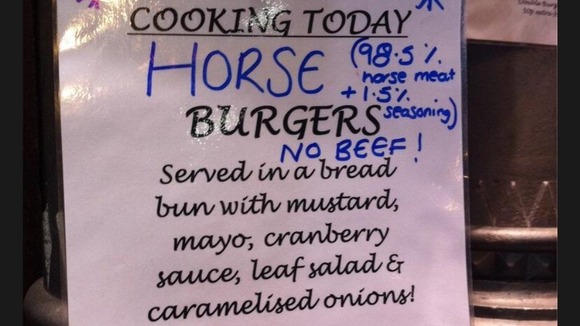 COOKING TODAY
HORSE (98.5%
horse meat
+ 1.5%
seasoning)
BURGERS
NO BEEF!
Served in a bread
bun with mustard,
mayo, cranberry
sauce, leaf salad &
caramelised onions!